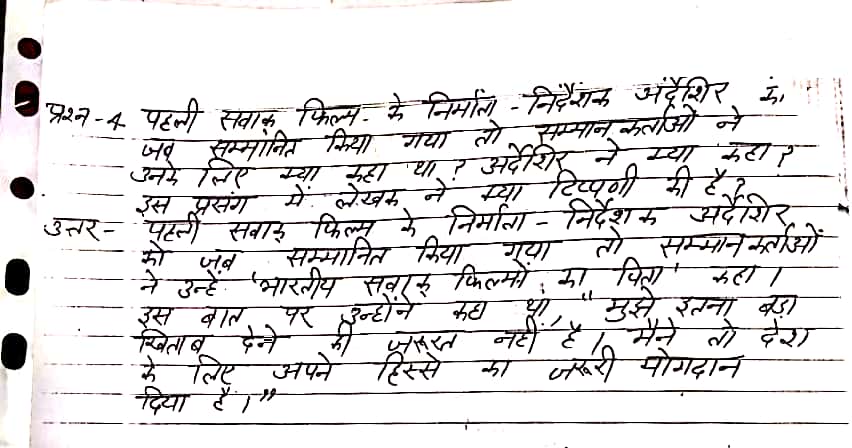 प्रश्न-4 पहली सवाक् फिल्म - के निर्माता - निर्देशक अर्देशिर को
जब सम्मानित किया गया तो सम्मानकर्ताओं ने
उनके लिए क्या कहा था? अर्देशिर ने क्या कहा?
इस प्रसंग में लेखक ने क्या टिप्पणी की है?
उत्तर- पहली सवाक् फिल्म के निर्माता - निर्देशक अर्देशिर
को जब सम्मानित किया गया तो सम्मानकर्ताओं
ने उन्हें 'भारतीय सवाक् फिल्मों का पिता' कहा।
इस बात पर उन्होंने कहा था, "मुझे इतना बड़ा
खिताब देने की जरूरत नहीं है। मैंने तो देश
के लिए अपने हिस्से का जरूरी योगदान
दिया है।"